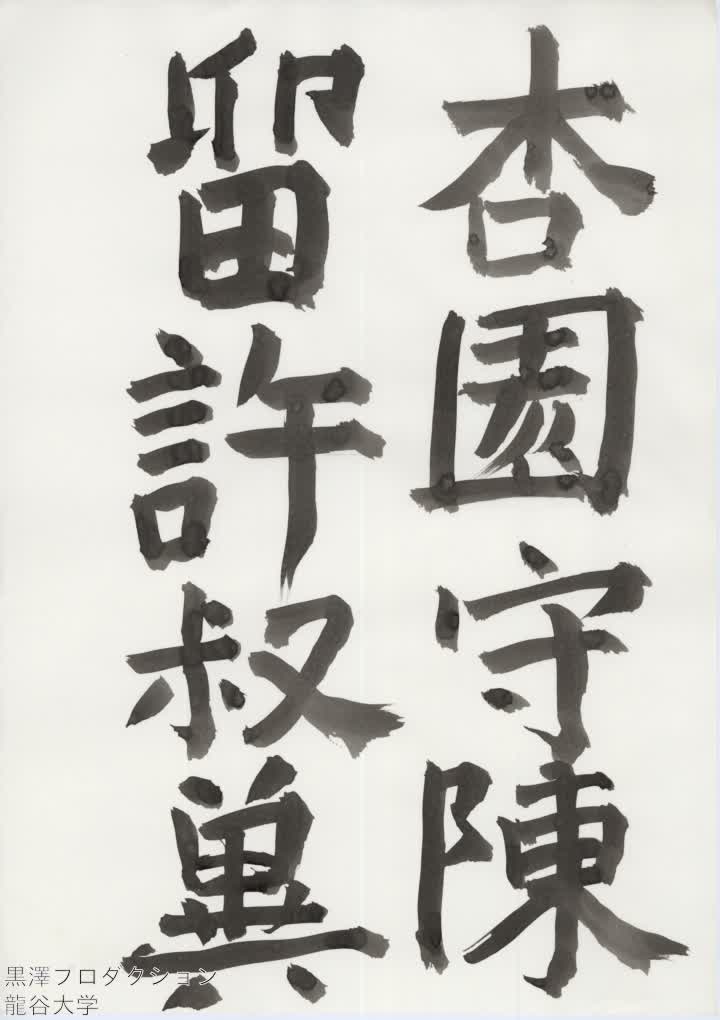 杏園守陳
留許叔冀
黒澤プロダクション
龍谷大学